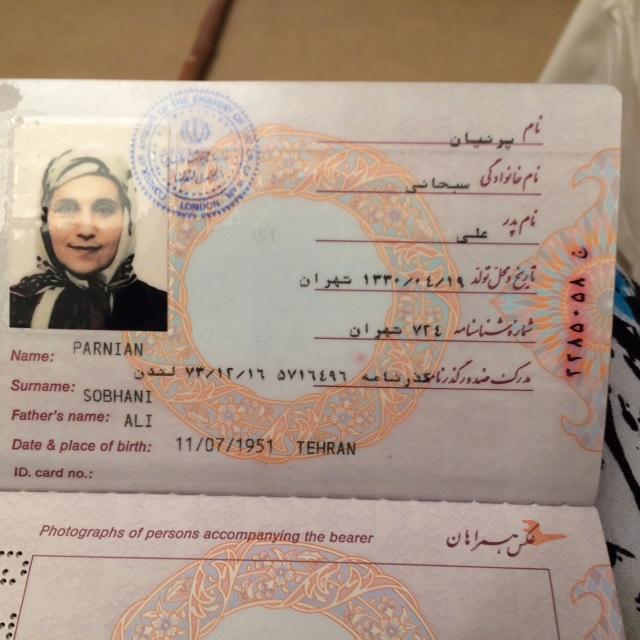 نام پرنیان
نام خانوادگی سبحانی
نام پدر علی
تاریخ و محل تولد ۱۳۳۰/۰۴/۱۹ تهران
شماره شناسنامه ۷۲۴ تهران
مدرک صدور گذرنامه گذرنامه ۵۷۱۶۴۹۶ ۷۳/۱۲/۱۶ لندن
Name: PARNIAN
Surname: SOBHANI
Father's name: ALI
Date & place of birth: 11/07/1951 TEHRAN
ID. card no.:
Photographs of persons accompanying the bearer عکس همراهان